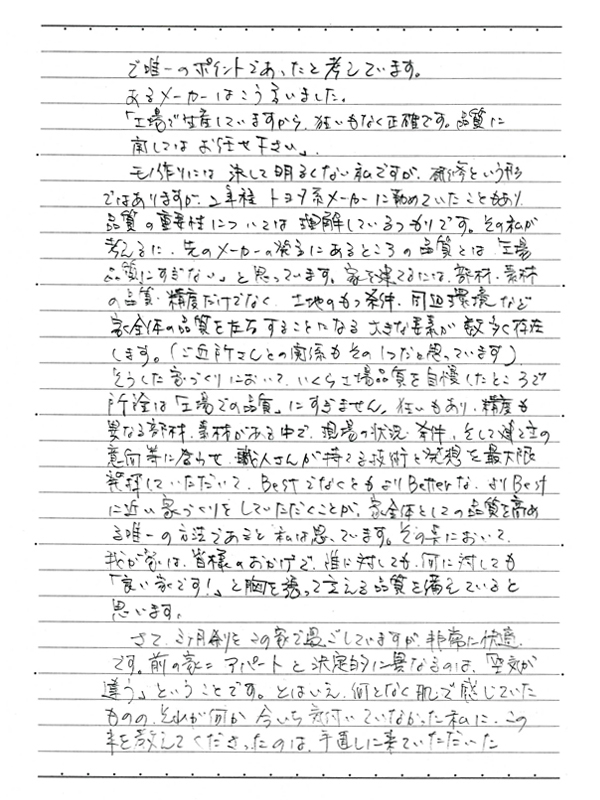 で唯一のポイントであったと考えています。
あるメーカーはこう言いました。
「工場で生産していますから、狂いもなく正確です。品質に
関してはお任せ下さい」。
モノ作りには決して明るくない私ですが、研修という形
ではありますが、2年程トヨタ系メーカーに勤めていたこともあり、
品質の重要性については理解しているつもりです。その私が
考えるに、先のメーカーの発言にあるところの品質とは「工場
品質にすぎない」と思っています。家を建てるには、部材・素材
の品質・精度だけでなく、土地のもつ条件、周辺環境など
家全体の品質を左右することになる大きな要素が数多く存在
します。(ご近所さんとの関係もその1つだと思っています)
そうした家づくりにおいて、いくら工場品質を自慢したところで
所詮は「工場での品質」にすぎません。狂いもあり、精度も
異なる部材、素材がある中で、現場の状況・条件、そして建て主の
意向等に合わせ、職人さんが持てる技術と発想を最大限
発揮していただいて、Bestでなくともより Betterな、よりBest
に近い家づくりをしていただくことが、家全体としての品質を高め
る唯一の方法であると私は思っています。その点において、
我が家は、皆様のおかげで、誰に対しても、何に対しても
「良い家です!」と胸を張って言える品質を備えていると
思います。
さて、3ヶ月余りをこの家で過ごしていますが、非常に快適
です。前の家=アパートと決定的に異なるのは、「空気が
違う」ということです。とはいえ、何となく肌で感じていた
ものの、それが何か今いち気付いていなかった私に、この
事を教えてくださったのは、手直しに来ていただいた